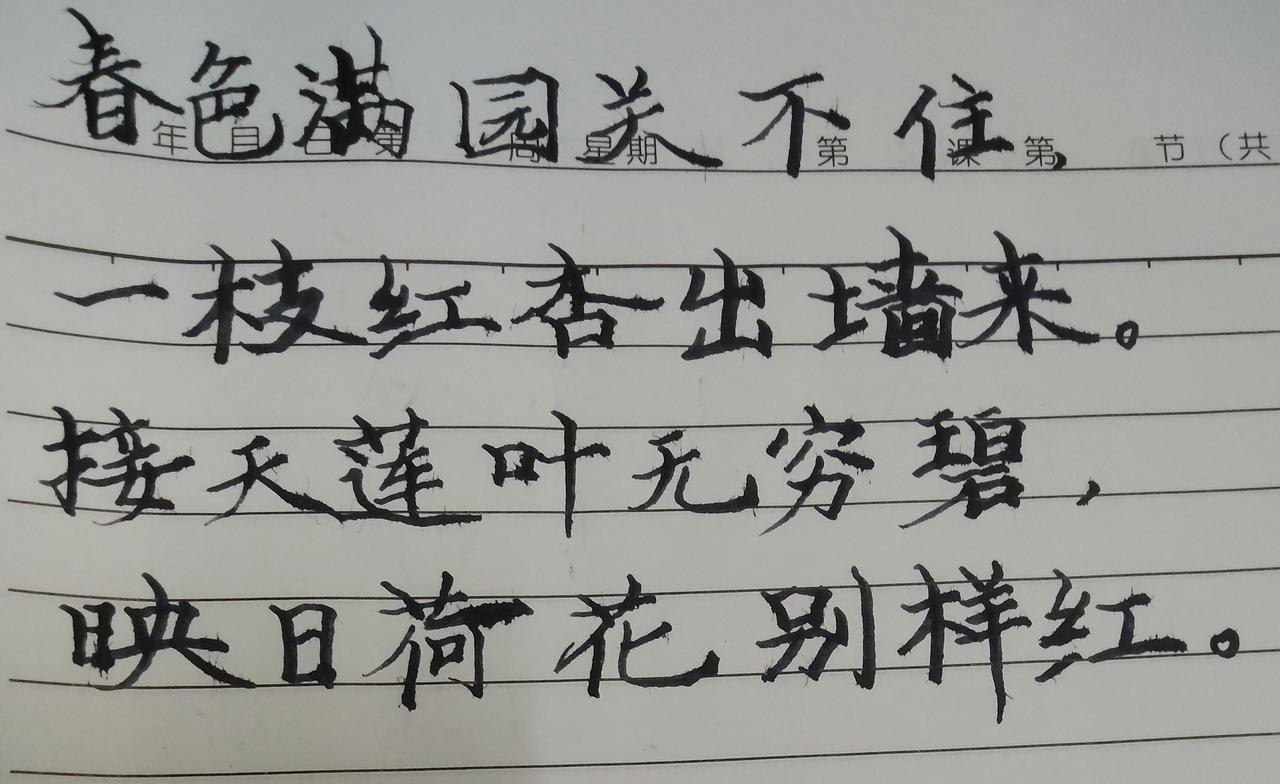 春色满园关不住，
年 月 日 第 周 星期 第 课 第 节（共
一枝红杏出墙来。
接天莲叶无穷碧，
映日荷花别样红。